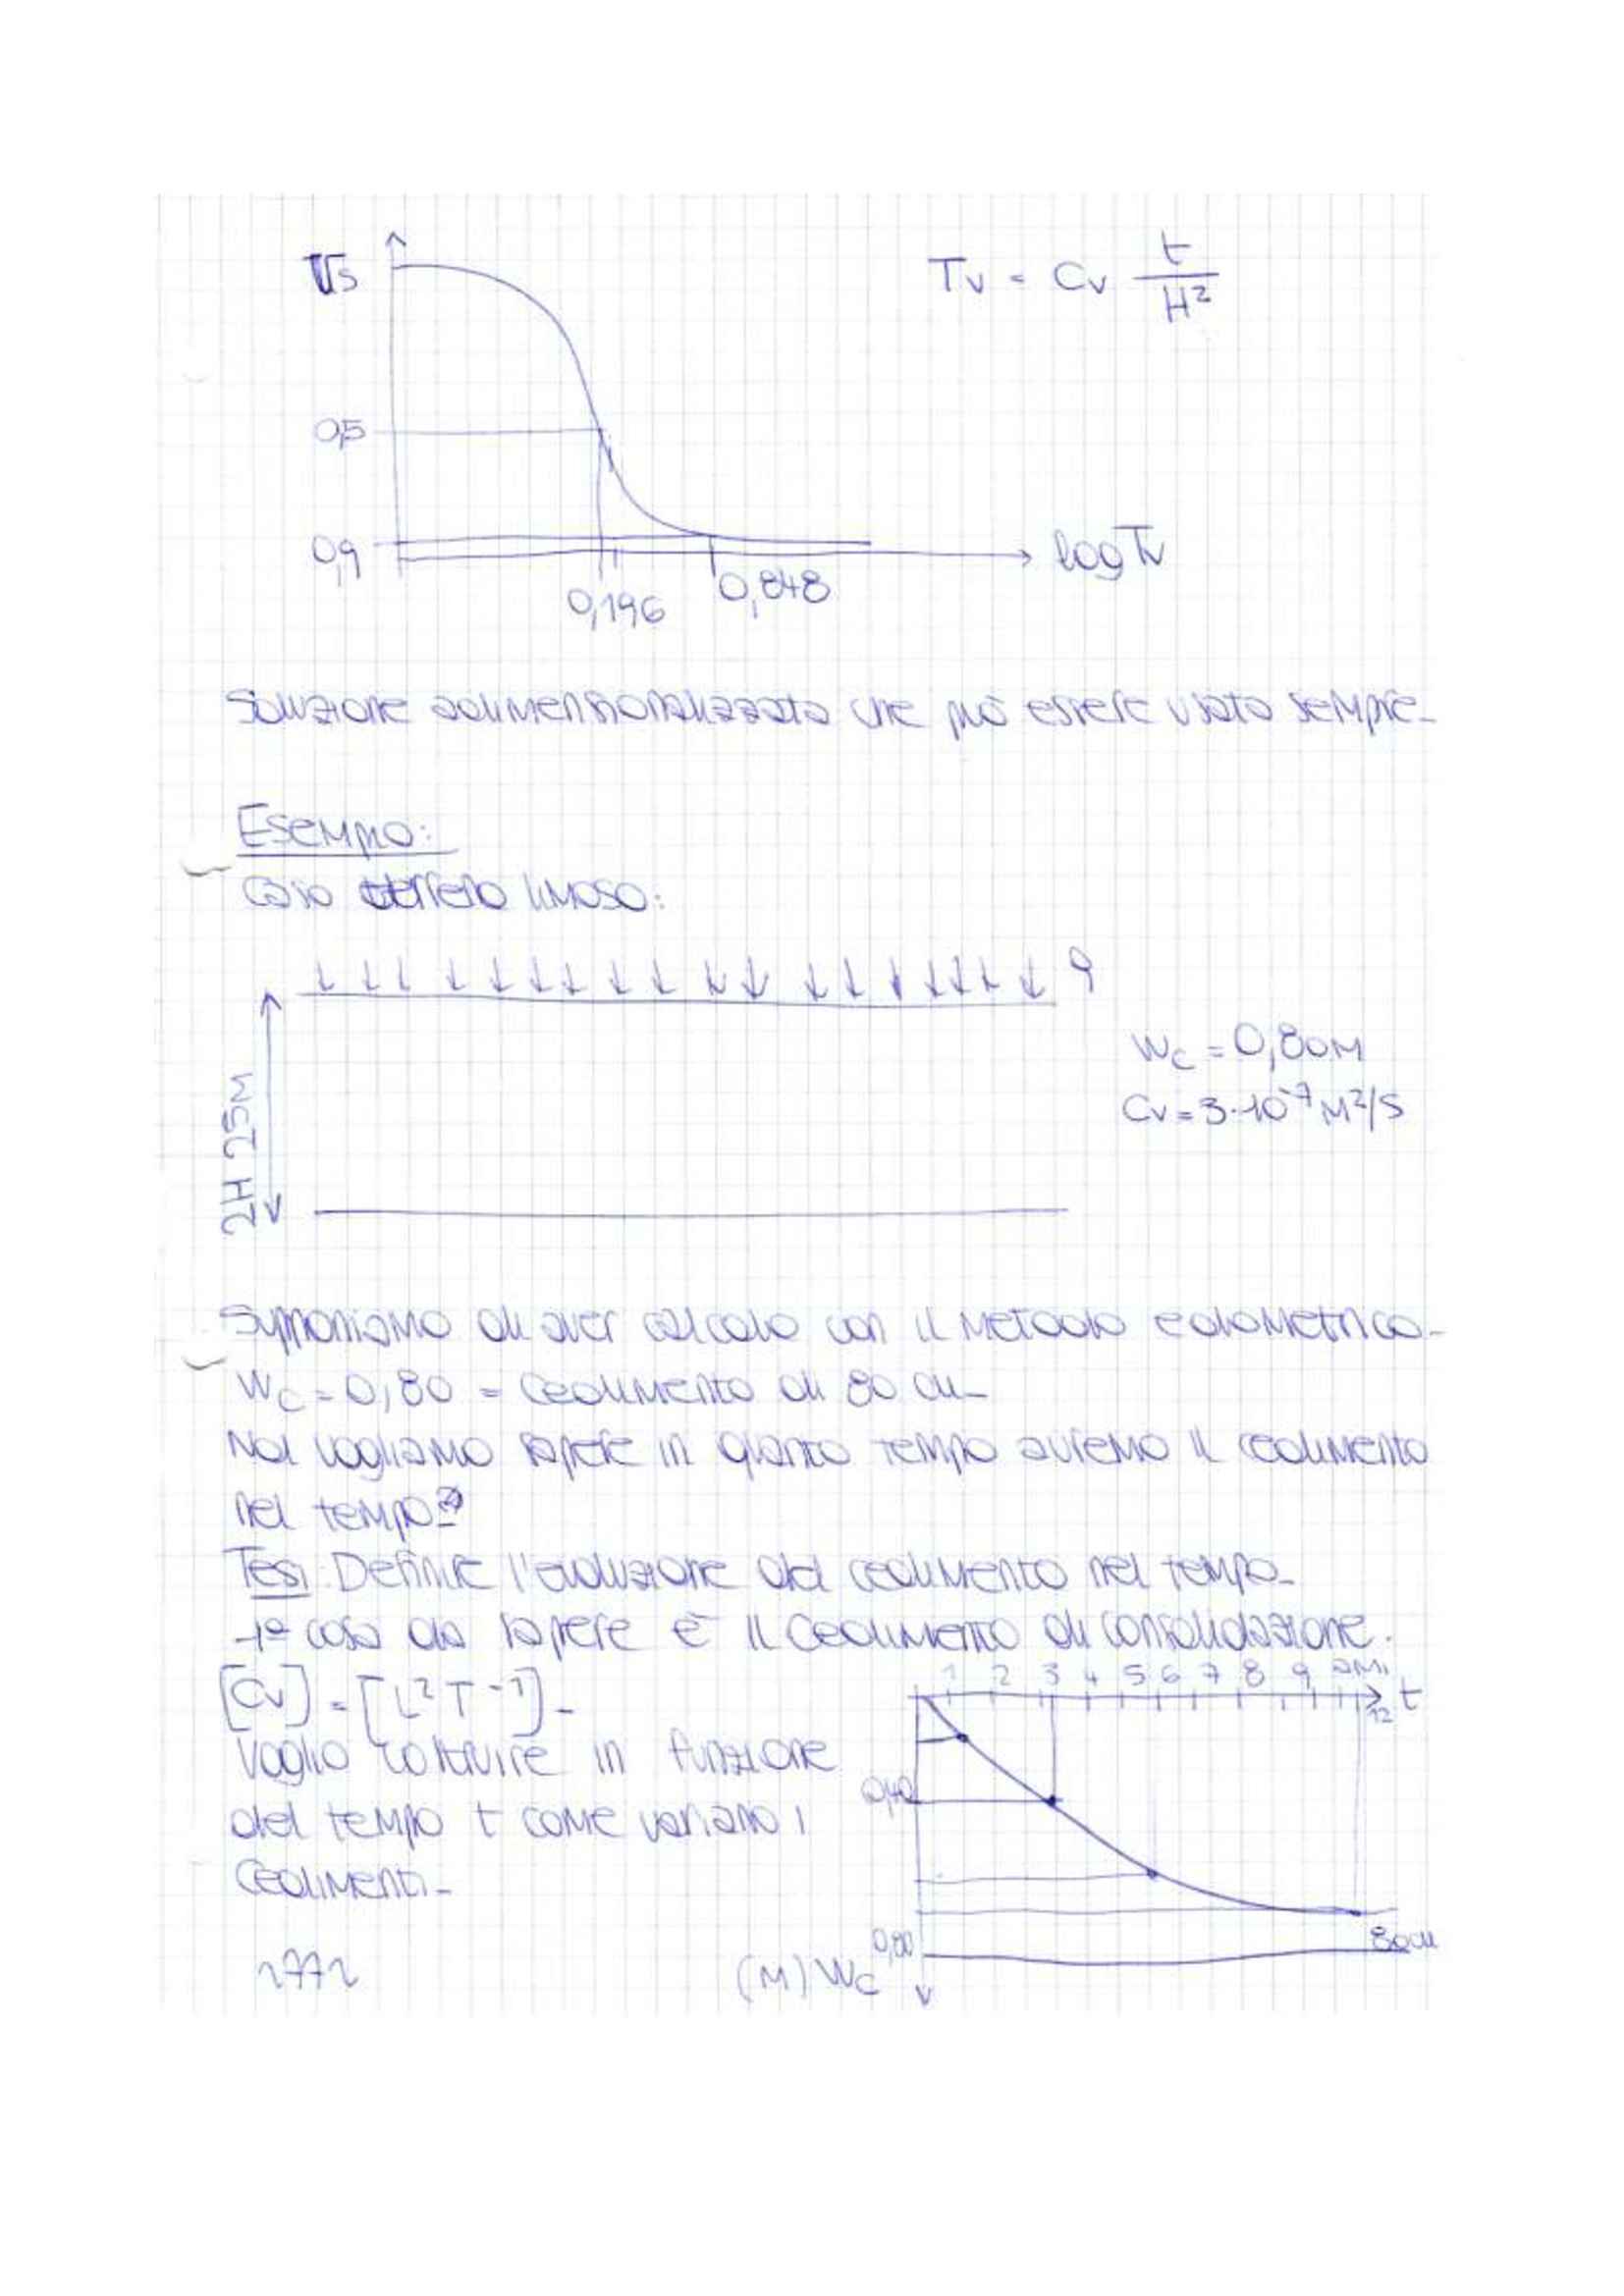 Us
Tv = Cv t/H²
0,5
0,9
log Tv
0,196
0,848
Soluzione adimensionalizzata che può essere usata sempre.
Esempio:
Caso terreno limoso:
q
2H 25M
Wc = 0,80M
Cv = 3·10⁻⁷ M²/S
Supponiamo di aver calcolo con il metodo edometrico.
Wc = 0,80 = Cedimento di 80 cm.
Noi vogliamo sapere in quanto tempo avremo il cedimento
nel tempo?
Tesi: Definire l'evoluzione del cedimento nel tempo.
1ª cosa da sapere è il Cedimento di consolidazione.
[Cv] = [L² T⁻¹].
Voglio costruire in funzione
del tempo t come variano i
Cedimenti.
1 2 3 4 5 6 7 8 9 anni
12
t
0,40
0,80
80cm
(M) Wc